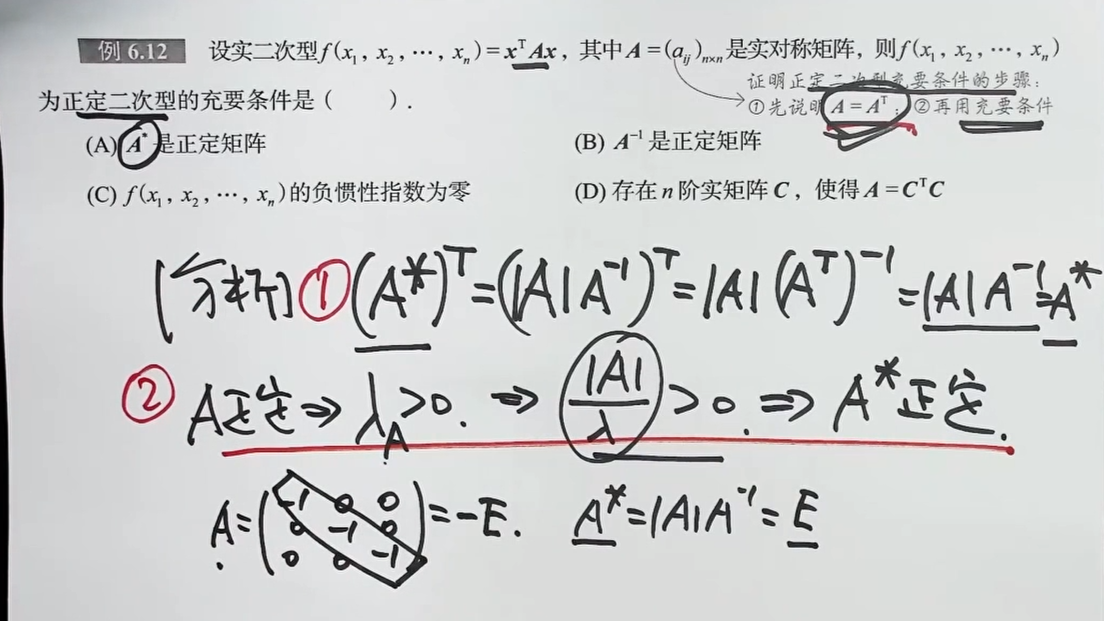 例 6.12 设实二次型 f(x₁, x₂, ⋯, xₙ) = xᵀAx，其中 A = (aᵢⱼ)ₙₓₙ 是实对称矩阵，则 f(x₁, x₂, ⋯, xₙ)
证明正定二次型充要条件的步骤：
为正定二次型的充要条件是（　　）.
①先说明 A = Aᵀ；②再用充要条件
(A) A* 是正定矩阵 (B) A⁻¹ 是正定矩阵
(C) f(x₁, x₂, ⋯, xₙ) 的负惯性指数为零 (D) 存在 n 阶实矩阵 C，使得 A = CᵀC
[分析] ① (A*)ᵀ = (|A|A⁻¹)ᵀ = |A|(Aᵀ)⁻¹ = |A|A⁻¹ = A*
② A正定 ⇒ λ_A > 0. ⇒ |A|/λ > 0. ⇒ A*正定.
A = (-1 0 0
0 -1 0
0 0 -1) = -E. A* = |A|A⁻¹ = E